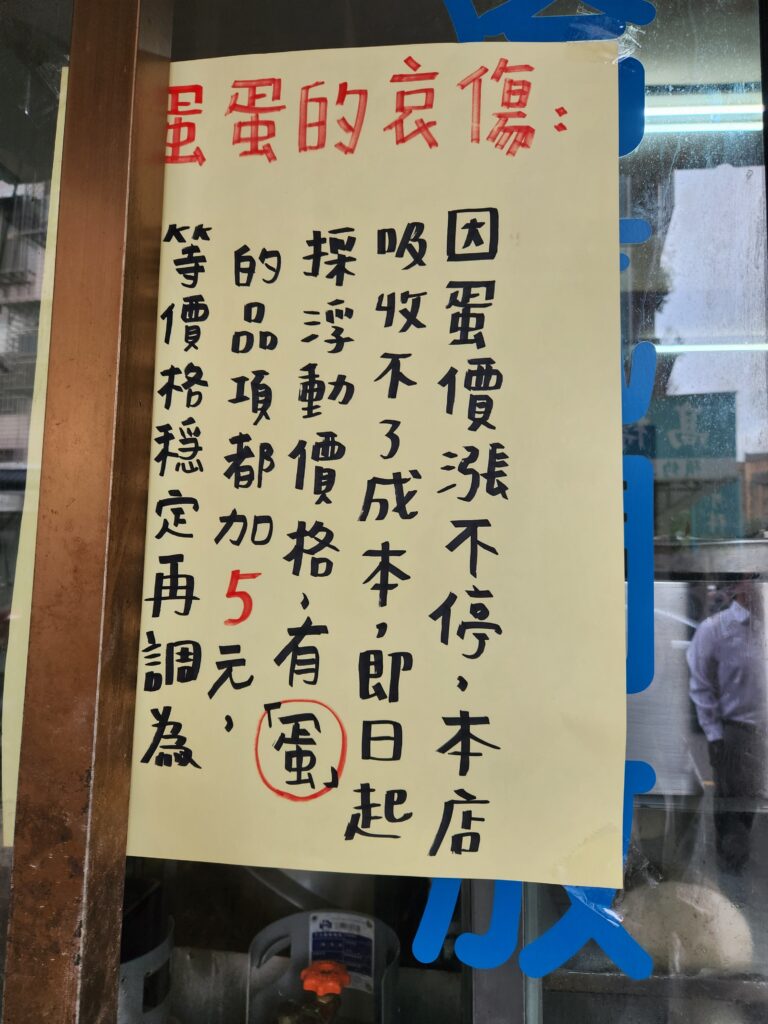 蛋蛋的哀傷:
因蛋價漲不停,本店
吸收不了成本,即日起
採浮動價格,有「蛋」
的品項都加5元,
等價格穩定再調為